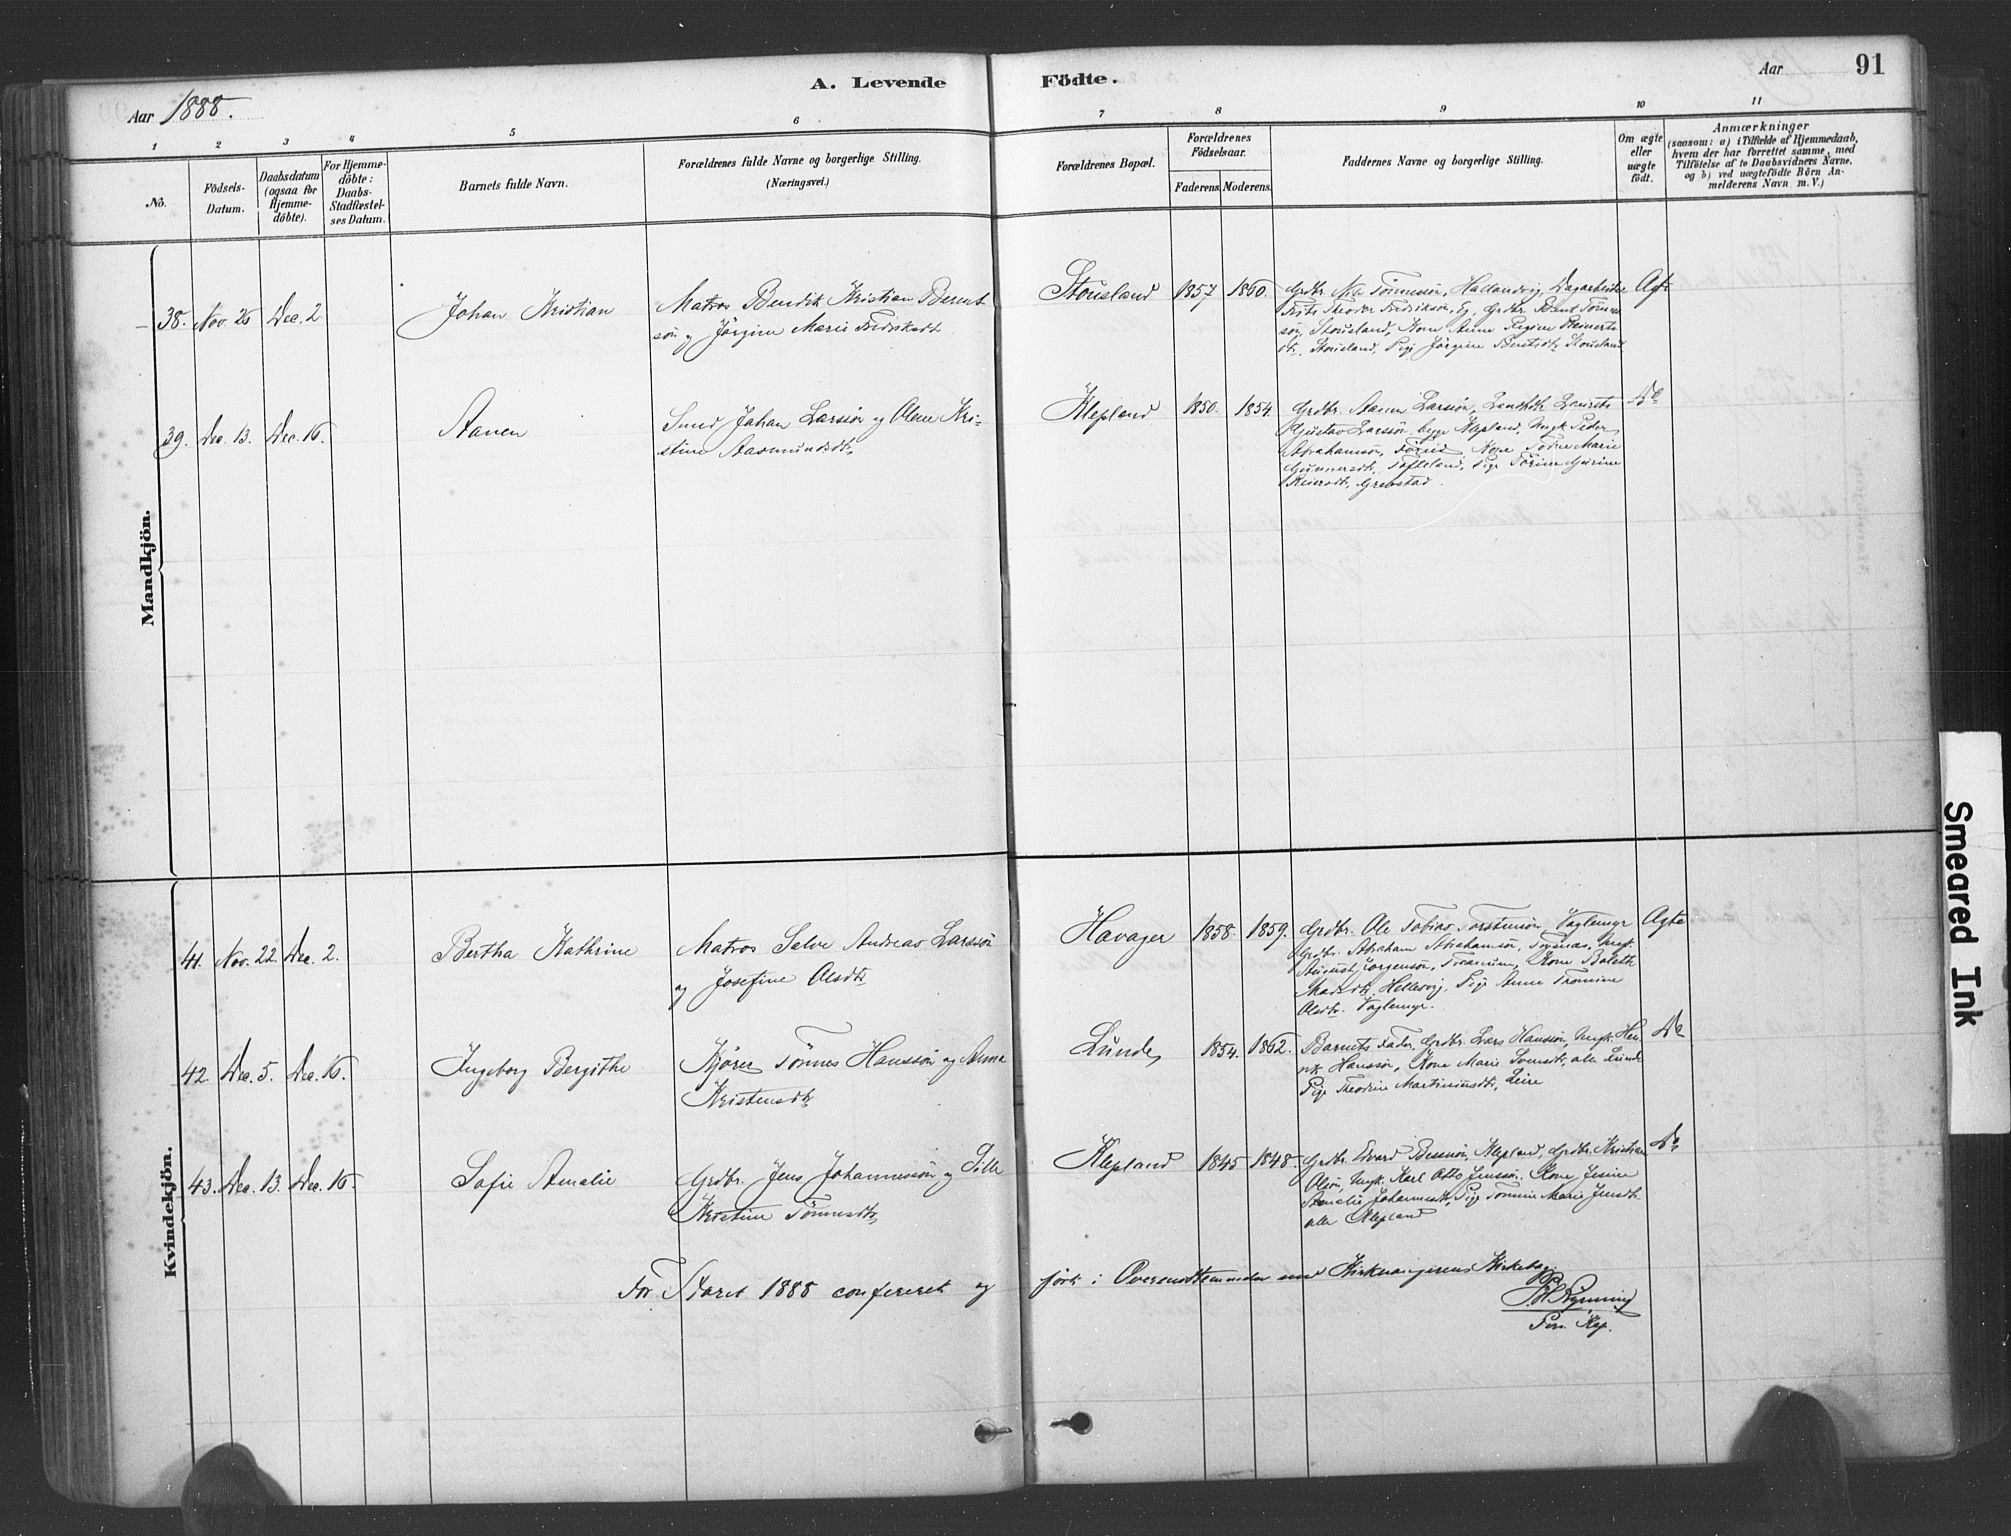 A. Levende Födte.
Aar 1888.
Aar 91
1 2 3 4 5 6 7 8 9 10 11
No.
Födsels-Datum.
Daabsdatum (ogsaa for Hjemme-döbte).
For Hjemme-döbte: Daabs-Stadfæstel-ses Datum.
Barnets fulde Navn.
Forældrenes fulde Navne og borgerlige Stilling.
(Næringsvei.)
Forældrenes Bopæl.
Forældrenes Födselsaar.
Faderens. Moderens.
Faddernes Navne og borgerlige Stilling.
Om ægte eller uægte født.
Anmærkninger
(saasom: a) i Tilfælde af Hjemmedaab,
hvem der har forrettet samme, med
Tilföielse af to Daabsvidners Navne.
og b) ved uægtefödte Börn An-
melderens Navn m. V.)
Mandkjön.
38. Nov. 26 Dec. 2 Johan Kristian
Matros Bendik Kristian Bernt
sön og Jörgine Marie Fredriksdt.
Stousland 1857 1860.
Grdbr. Nils Tönnessön, Hallandvig, Dagarbeider
Frits Theodor Fredriksön, Eg, Grdbr. Bernt Tönnes
sön, Stousland, Kone Anne Regine Reinerts
dt. Stousland, Pige Jörgine Berntsdt. Stousland
Ægte
39. Dec. 13. Dec. 16. Aanen
Smed Johan Larssön og Olene Kri-
stine Aasmundsdt.
Klepland 1850. 1854.
Grdbr. Aanen Larssön, Laurits
Gustav Larssön, begge Klepland, Ungk. Peder
Abrahamsön, Kone Marie
Gunnersdt., Tofteland, Pige Gurine
Reiersdt., Grebstad.
Do
Kvindekjön.
41. Nov. 22. Dec. 2. Bertha Kathrine
Matros Salve Andreas Larssön
og Josefine Olsdt.
Havager 1858. 1859.
Grdbr. Ole Tobias Torstensön, Vaglemyr
Grdbr. Abraham Abrahamsön, Ungk.
August Jörgensön, Kone
Madsdt. Hellevig, Pige Anne Tomine
Olsdt. Vaglemyr.
Ægte
42 Dec. 5. Dec. 16. Ingeborg Bergithe
Kjörer Tönnes Hanssön og Anna
Kristensdt.
Lunde 1854. 1862.
Barnets Fader, Grdbr. Lars Hanssön, Ungk. Hen
rik Hanssön, Kone Marie Svensdt., alle Lunde
Pige Theodine Martiniusdt., Leire
Do
43. Dec. 13 Dec. 16. Sofie Amalie
Grdbr. Jens Johannessön og Sille
Kristine Tönnesdt.
Klepland 1845 1848.
Grdbr. Edvard Klepland, Grdbr. Kristian
Olsön, Ungk. Karl Otto Jenssön, Kone Jensine
Amalie Johannesdt., Pige Tomine Marie Jensdt.
alle Klepland
Do
For Aaret 1888 confereret og fört i Overensstemmelse med Kirkesangerens Kirkebog.
Pers. Kap.
Smeared Ink